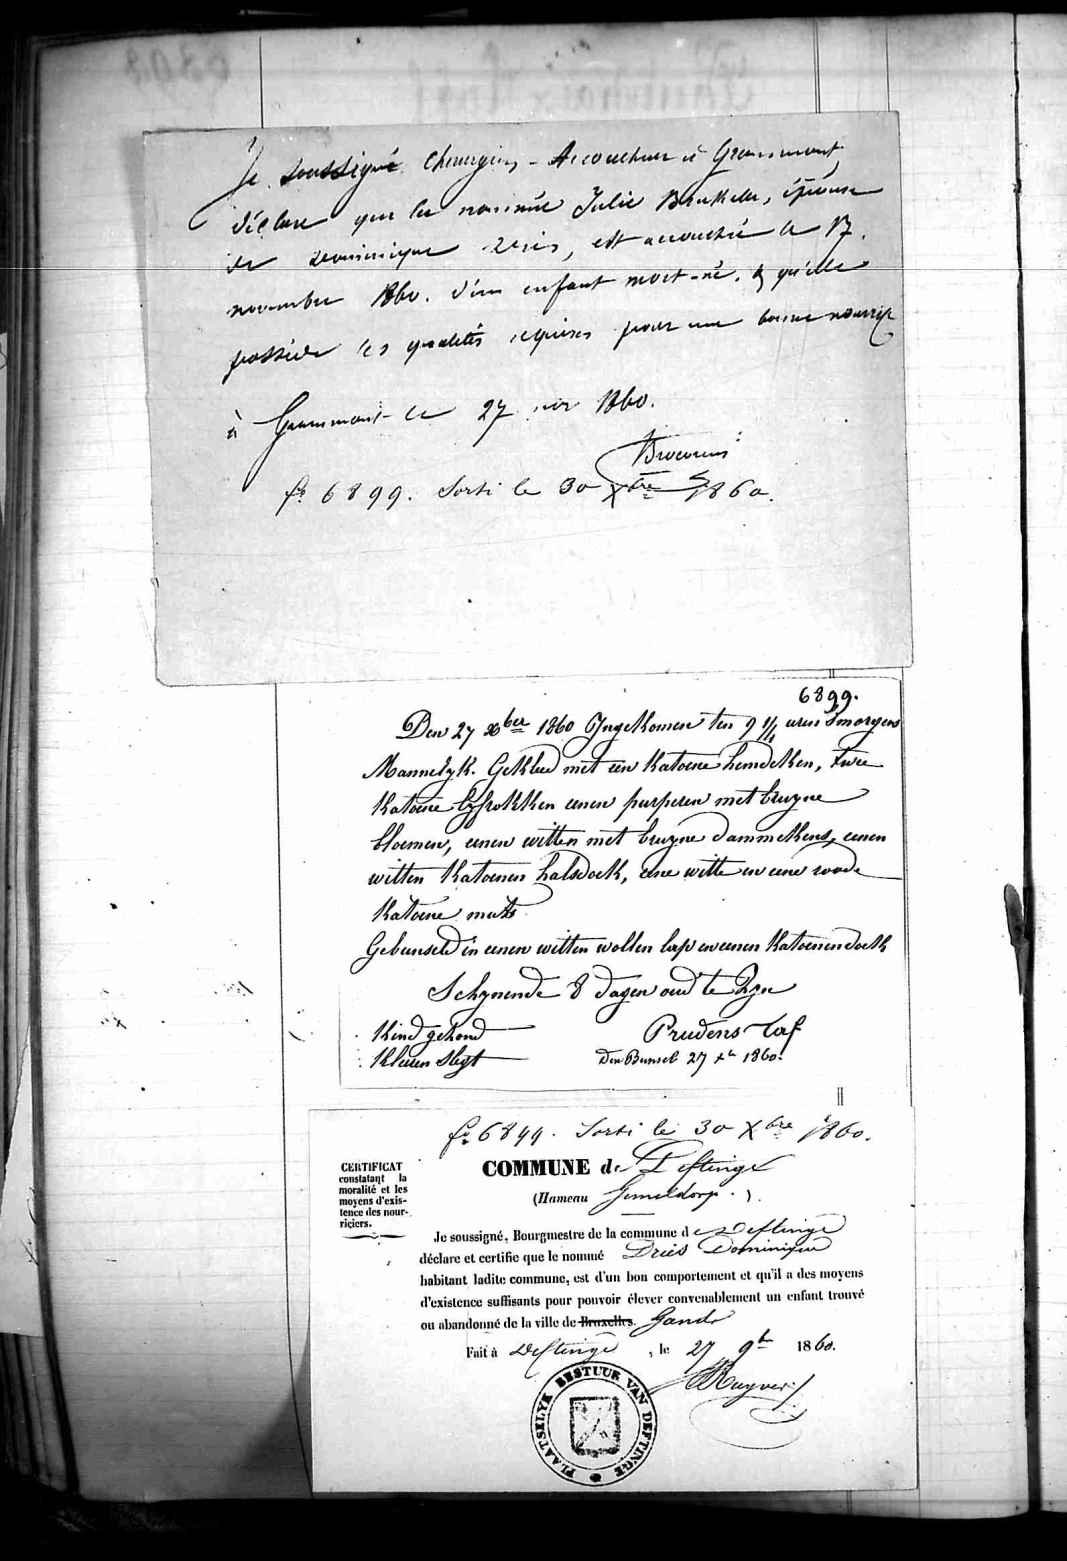 Je soussigné Chirurgien - Accoucheur à Grammont,
déclare que la nommée Julie , épouse
de Dominique Dries, est accouchée le 17.
novembre 1860. d'un enfant mort-né. & qu'elle
possède les qualités requises pour une bonne nourrice
à Grammont le 27 nov 1860.
f° 6899. Sorti le 30 Xbre 1860.
6899.
Den 27 xber 1860 Ingekomen ten 9 uren Smorgens
Mannelyk. Gekleed met een katoene hemdeken, twee
katoene lyfrokken eenen purperen met bruyne
bloemen, eenen witten met bruyne dammekens, eenen
witten katoenen halsdoek, eene witte en eene roode
katoene muts
Gebunseld in eenen witten wollen lap en eenen katoenen doek
Schynende 8 dagen oud te zyn
Kind gezond
Kleeren slegt
Prudens Taf
Den Bunsel 27 xbr 1860.
f° 6899. Sorti le 30 Xbre 1860.
CERTIFICAT
constatant la
moralité et les
moyens d'exis-
tence des nour-
riciers.
COMMUNE de Deftinge
(Hameau ).
Je soussigné, Bourgmestre de la commune de Deftinge
déclare et certifie que le nommé Dries Dominique
habitant ladite commune, est d'un bon comportement et qu'il a des moyens
d'existence suffisants pour pouvoir élever convenablement un enfant trouvé
ou abandonné de la ville de Bruxelles. Gand
Fait à Deftinge, le 27 9br 1860.
PLAATSELYK BESTUUR VAN DEFTINGE